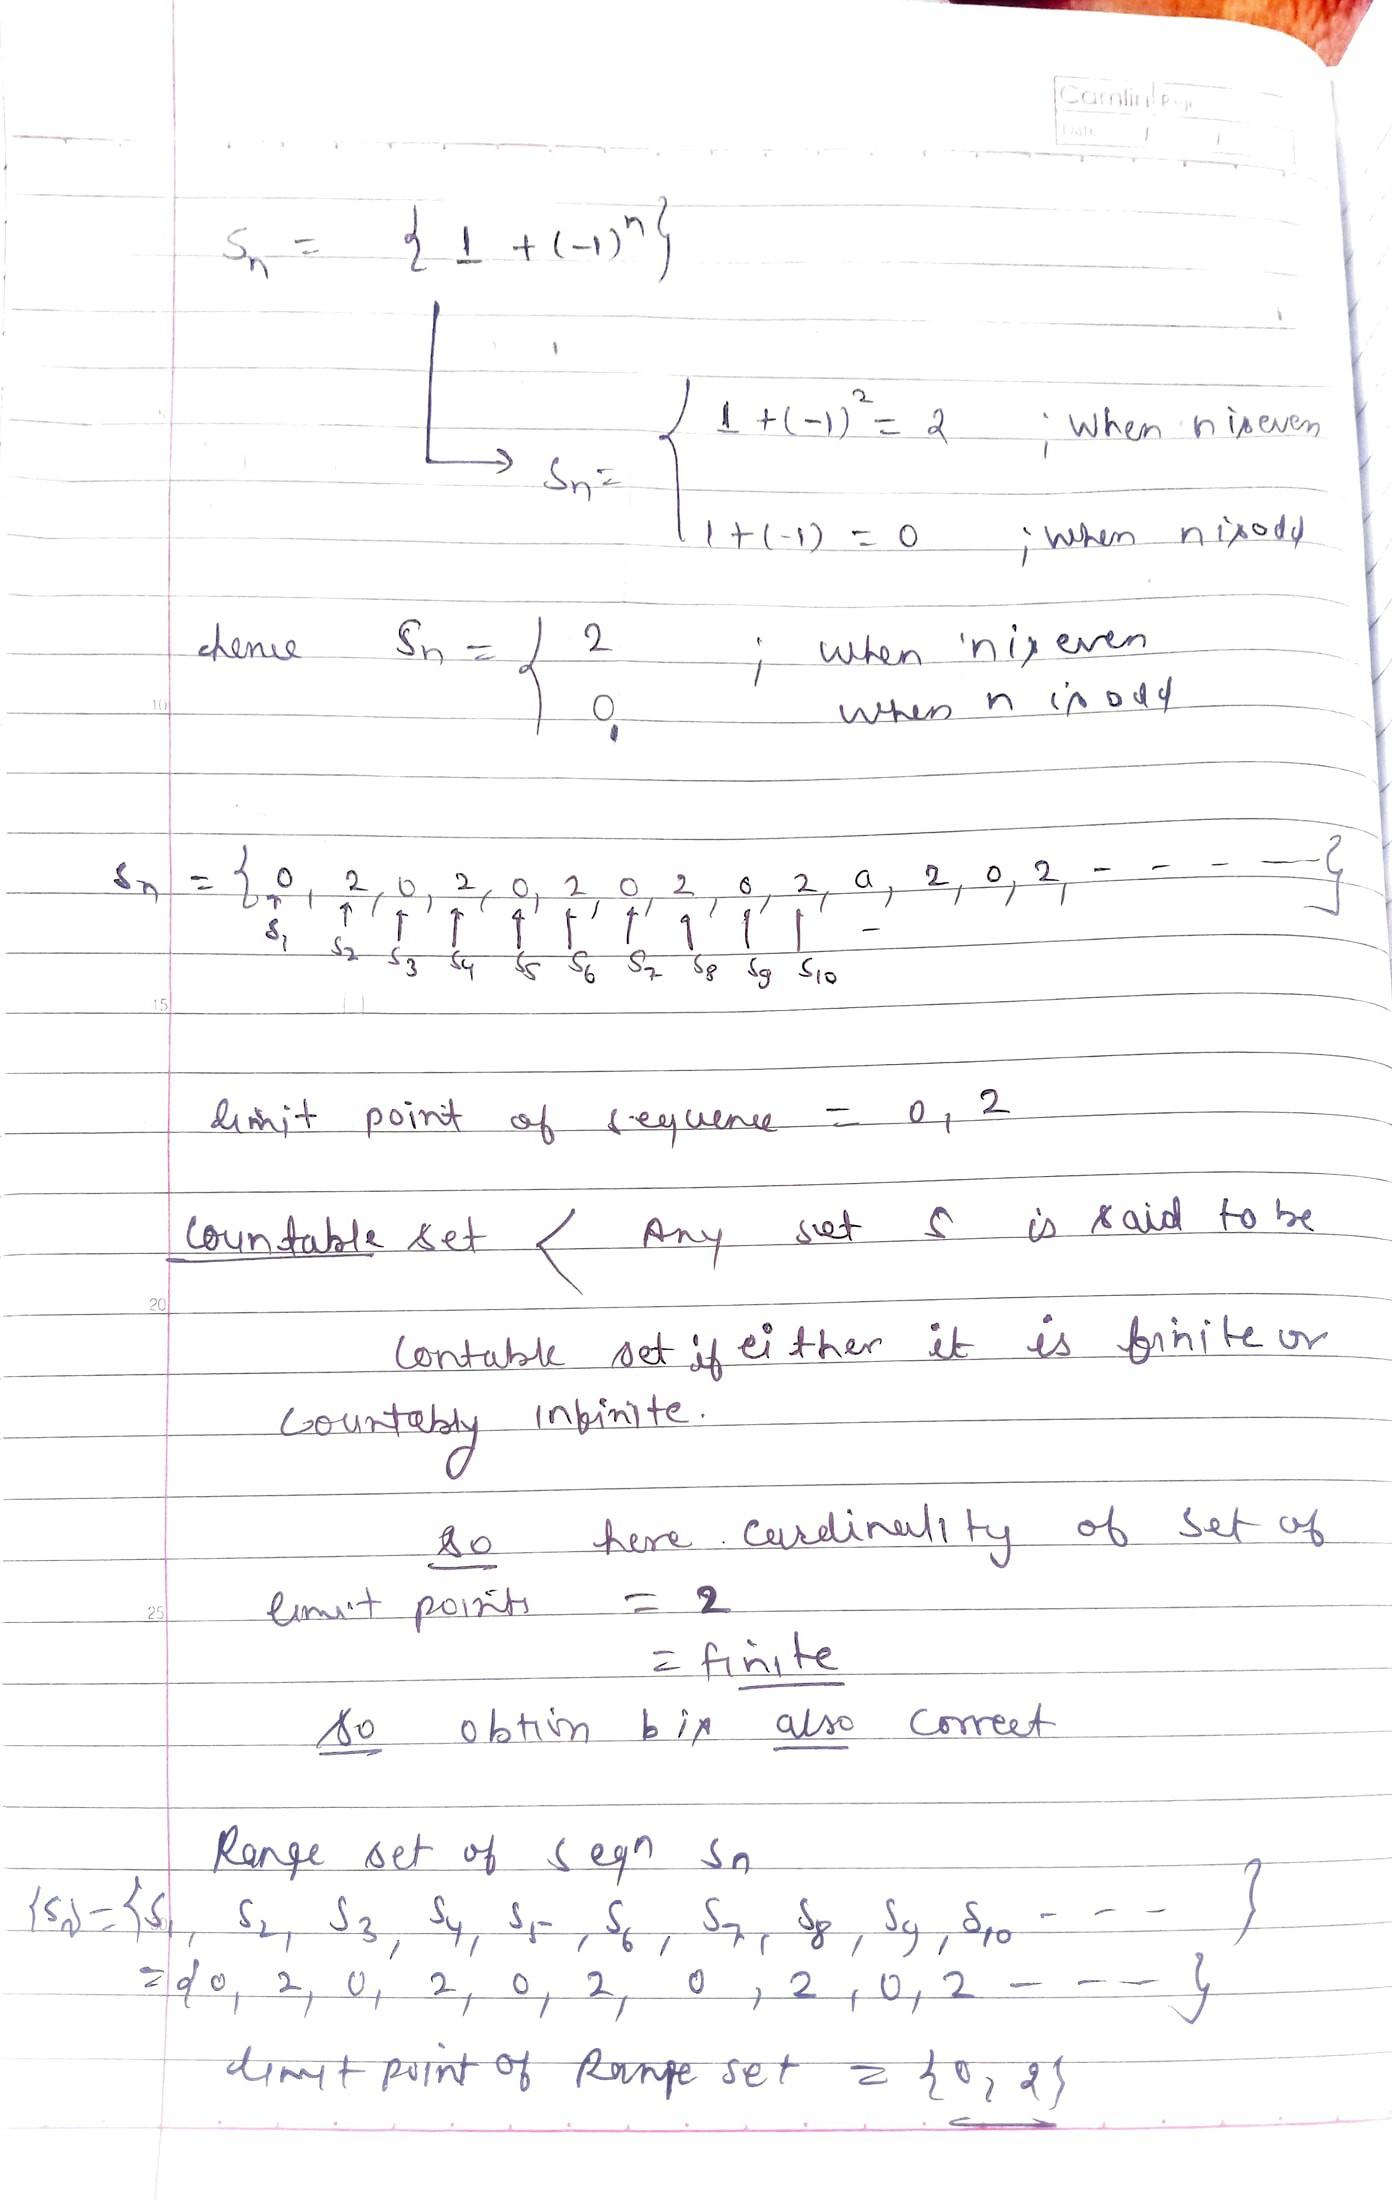 Camlin Page
Date / /
Sn = { 1 + (-1)^n }
1 + (-1)^2 = 2 ; when n is even
Sn =
1 + (-1) = 0 ; when n is odd
hence Sn = { 2 ; when n is even
0, when n is odd
10
Sn = { 0, 2, 0, 2, 0, 2, 0, 2, 0, 2, 0, 2, 0, 2, - - - - }
S1 S2 S3 S4 S5 S6 S7 S8 S9 S10 -
15
limit point of sequence = 0, 2
Countable set < Any set S is said to be
20
Contable set if either it is finite or
Countably infinite.
So here cardinality of set of
limit points = 2
25
= finite
So obtion b is also correct
Range set of seqn Sn
{Sn} = { S1, S2, S3, S4, S5, S6, S7, S8, S9, S10 - - - - }
= { 0, 2, 0, 2, 0, 2, 0, 2, 0, 2 - - - - }
limit point of Range set = {0, 2}